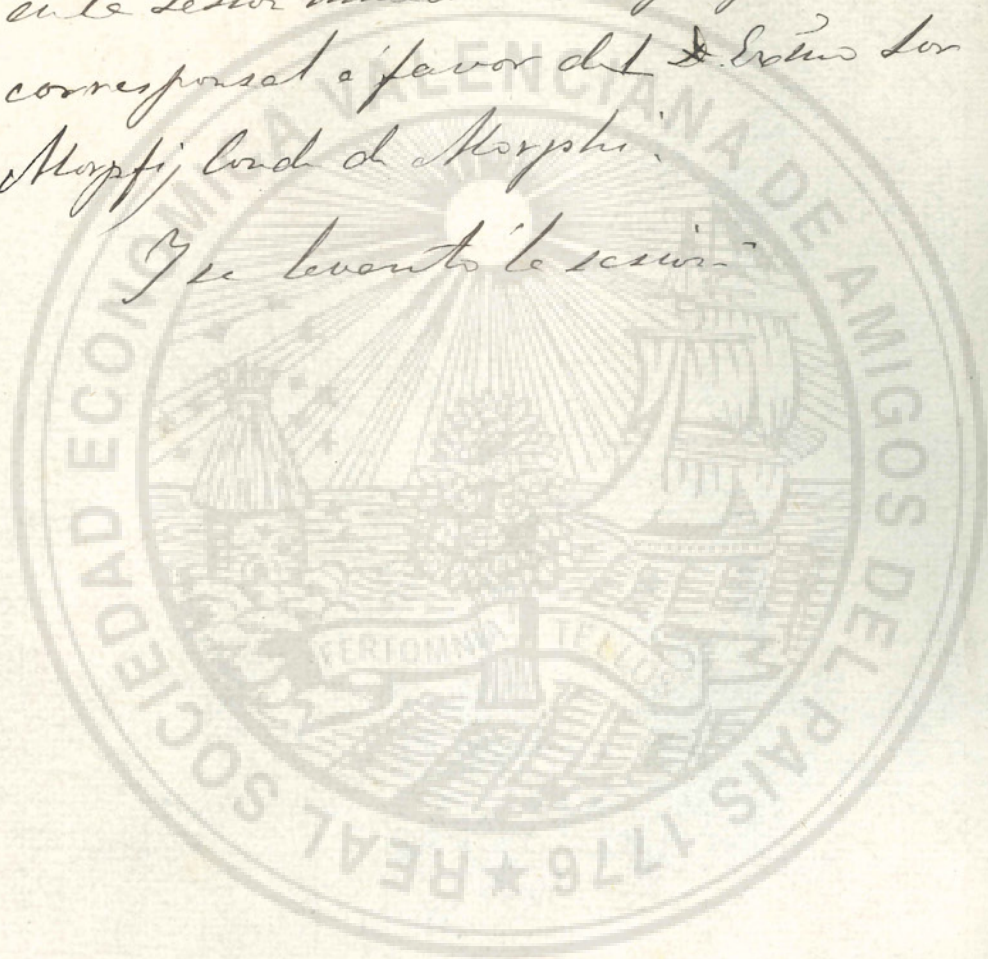 en la sesion
corresponsal a favor del D. Exc̃mo Sor
Morpfi, Conde de Morphi.
Y se levantó la sesion
REAL SOCIEDAD ECONOMICA VALENCIANA DE AMIGOS DEL PAIS 1776 ★
FERT OMNIA TELLUS